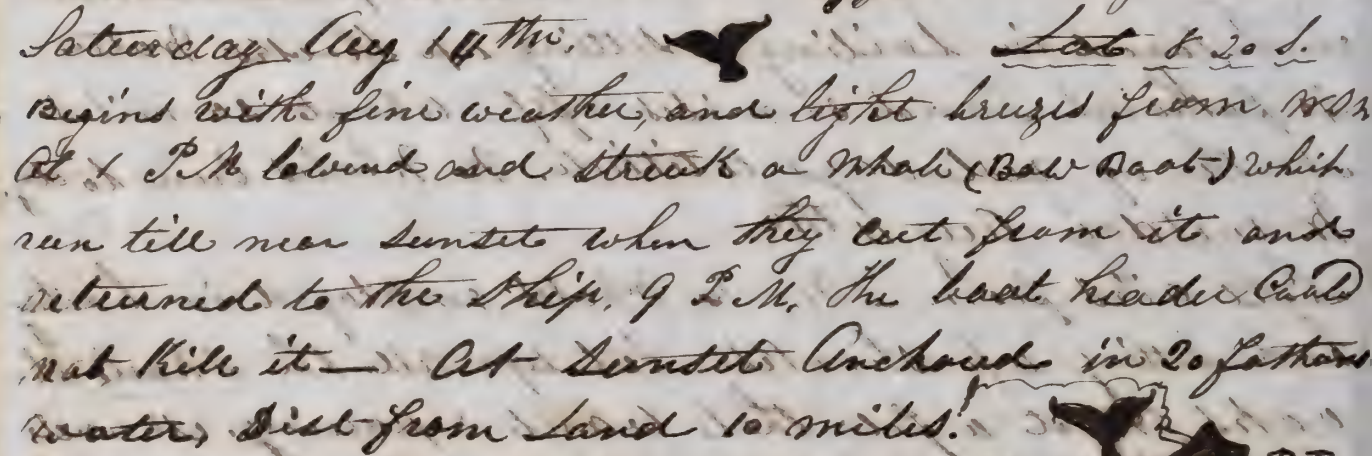 Saturday Aug 14th. Lat 8 20 S.
Begins with fine weather, and light breezes from WSW
At 1 PM lowerd and struck a Whale (Bow Boat) which
run till near sunset when they cut from it and
returned to the Ship. 9 P.M. The boat header Could
not Kill it — At Sunset Anchord in 20 fathoms
water, Dist from Land 10 miles.